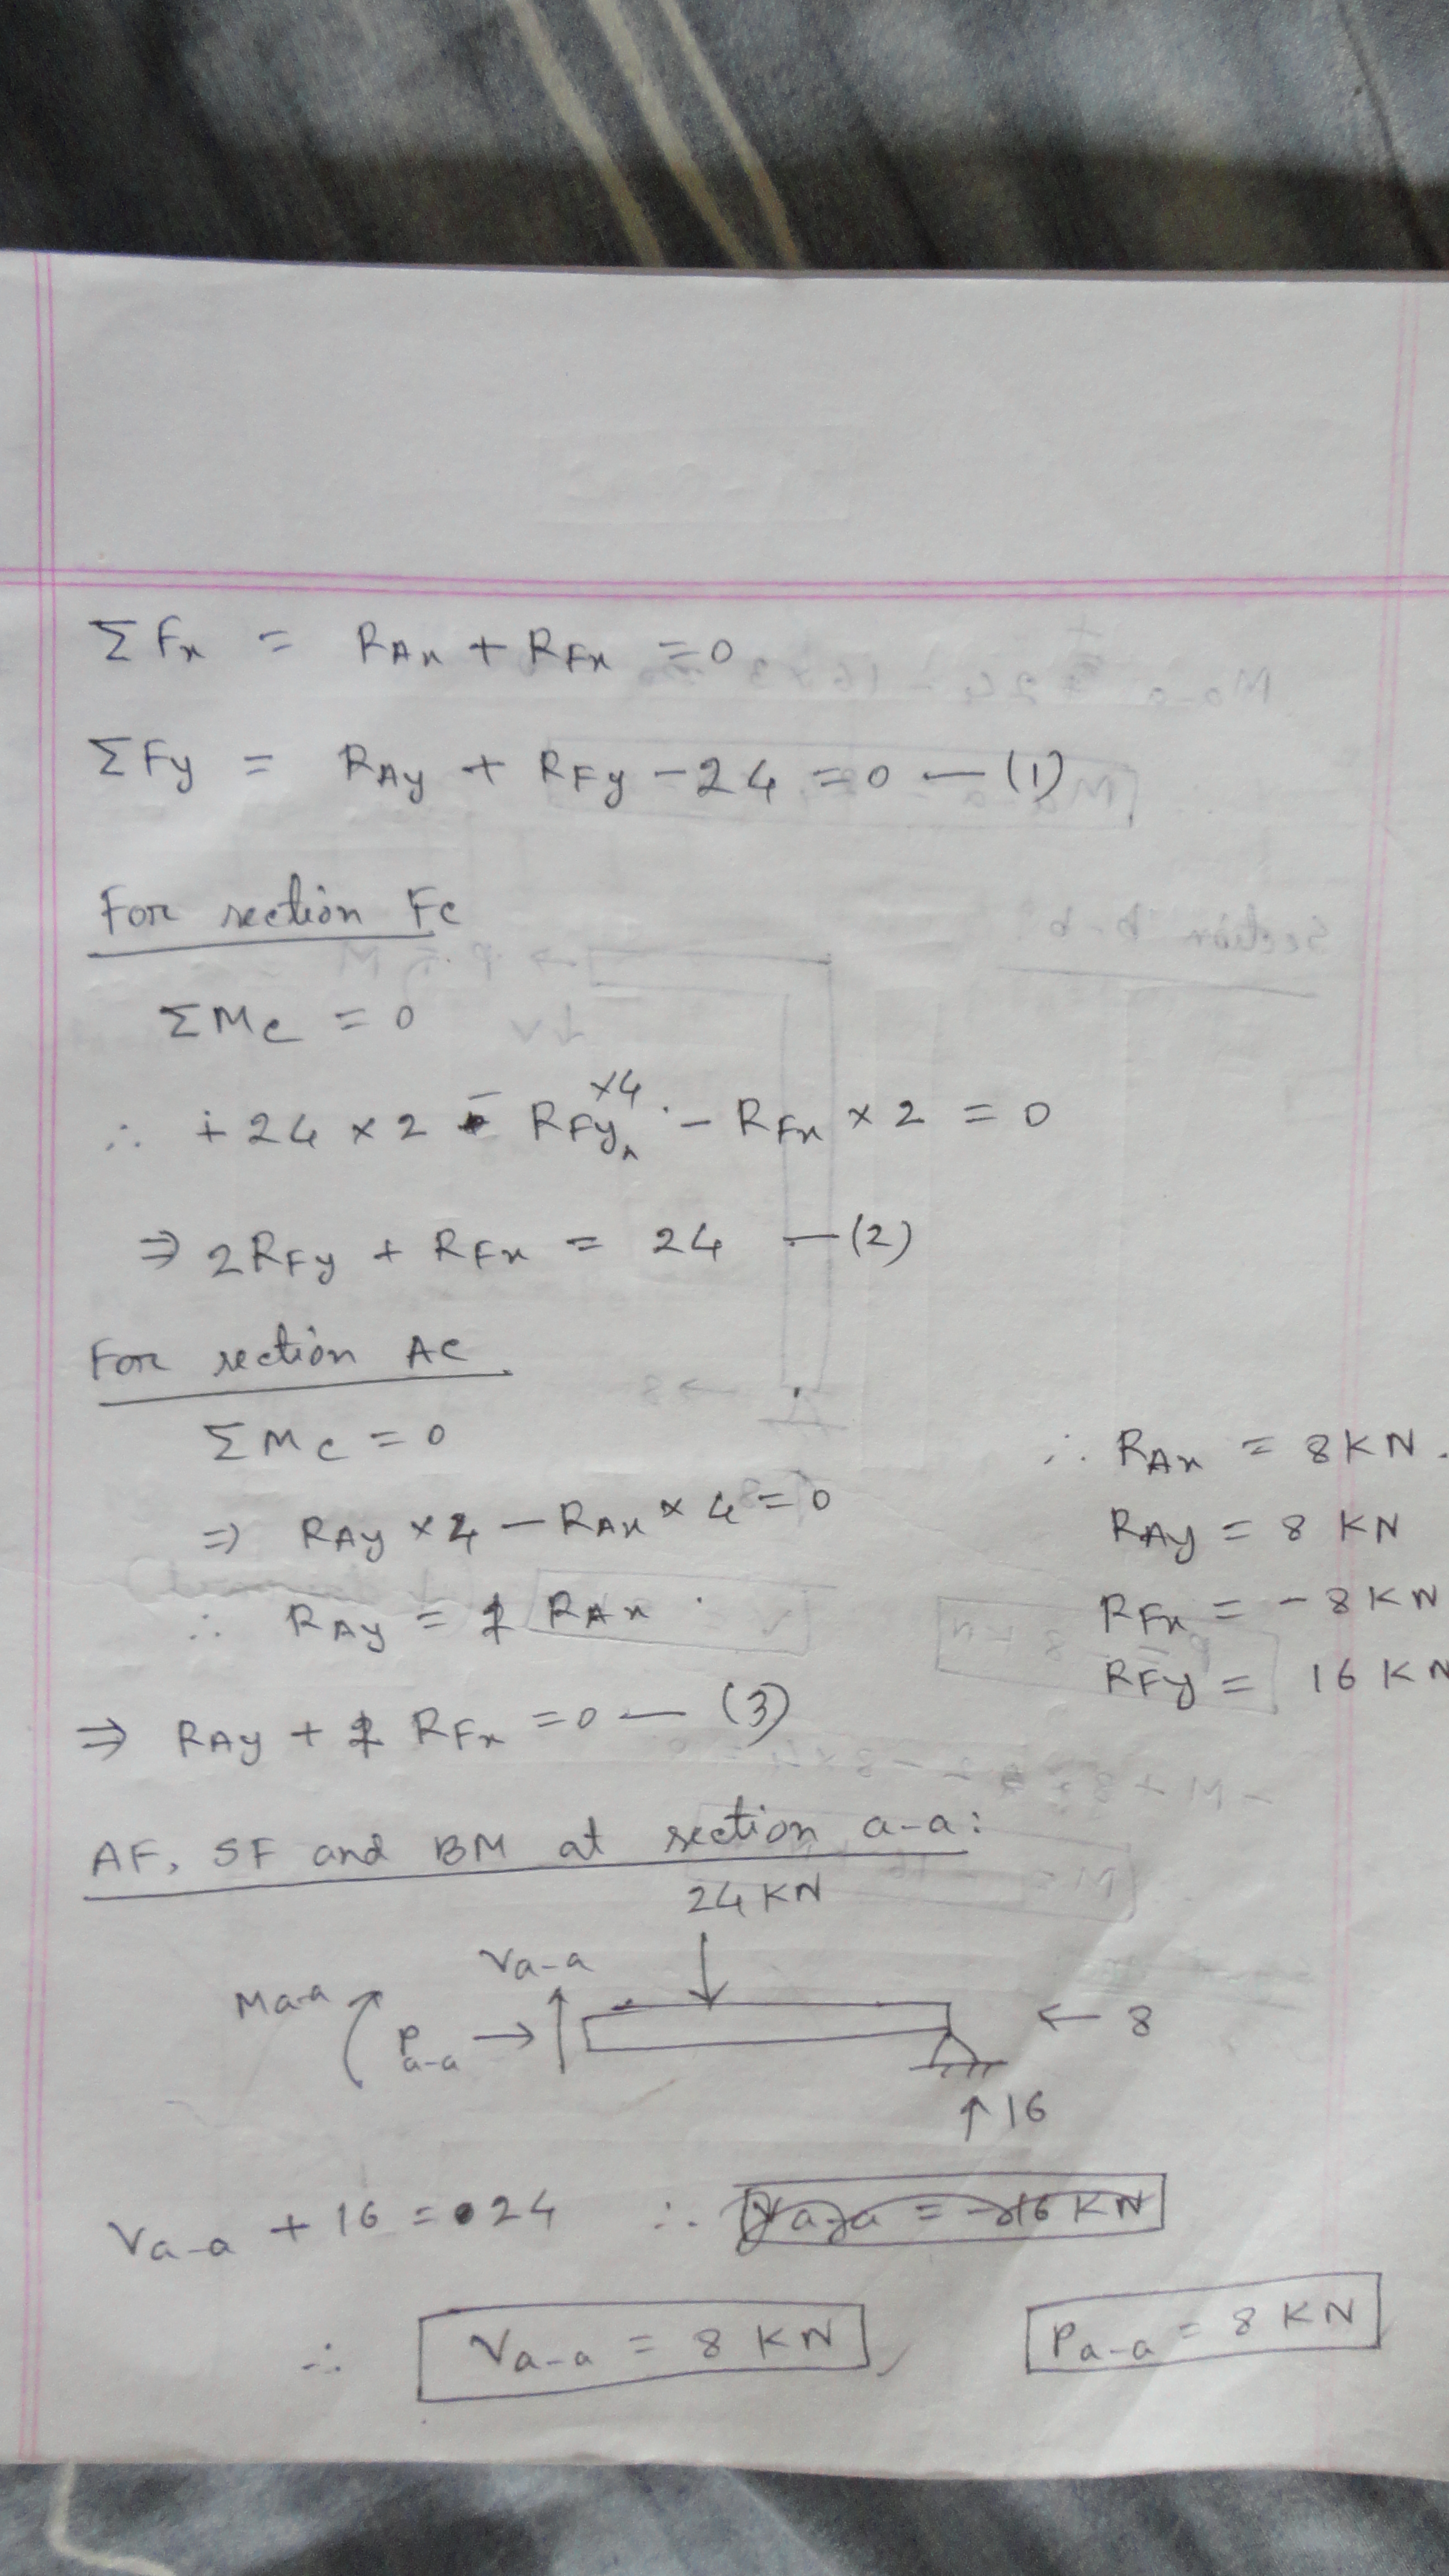 ΣFx = RAx + RFx = 0
ΣFy = RAy + RFy - 24 = 0 — (1)
For section FC
ΣMc = 0
∴ +24 × 2 - RFy ×4 - RFx × 2 = 0
⇒ 2RFy + RFx = 24 — (2)
For section AC
ΣMc = 0
⇒ RAy × 4 - RAx × 4 = 0
∴ RAy = 1 RAx
⇒ RAy + 1 RFx = 0 — (3)
∴ RAx = 8 KN.
RAy = 8 KN
RFx = -8 KN
RFy = 16 KN
AF, SF and BM at section a-a:
24 KN
Va-a
Ma-a
Pa-a
← 8
↑ 16
Va-a + 16 = 24 ∴
∴ Va-a = 8 KN, Pa-a = 8 KN